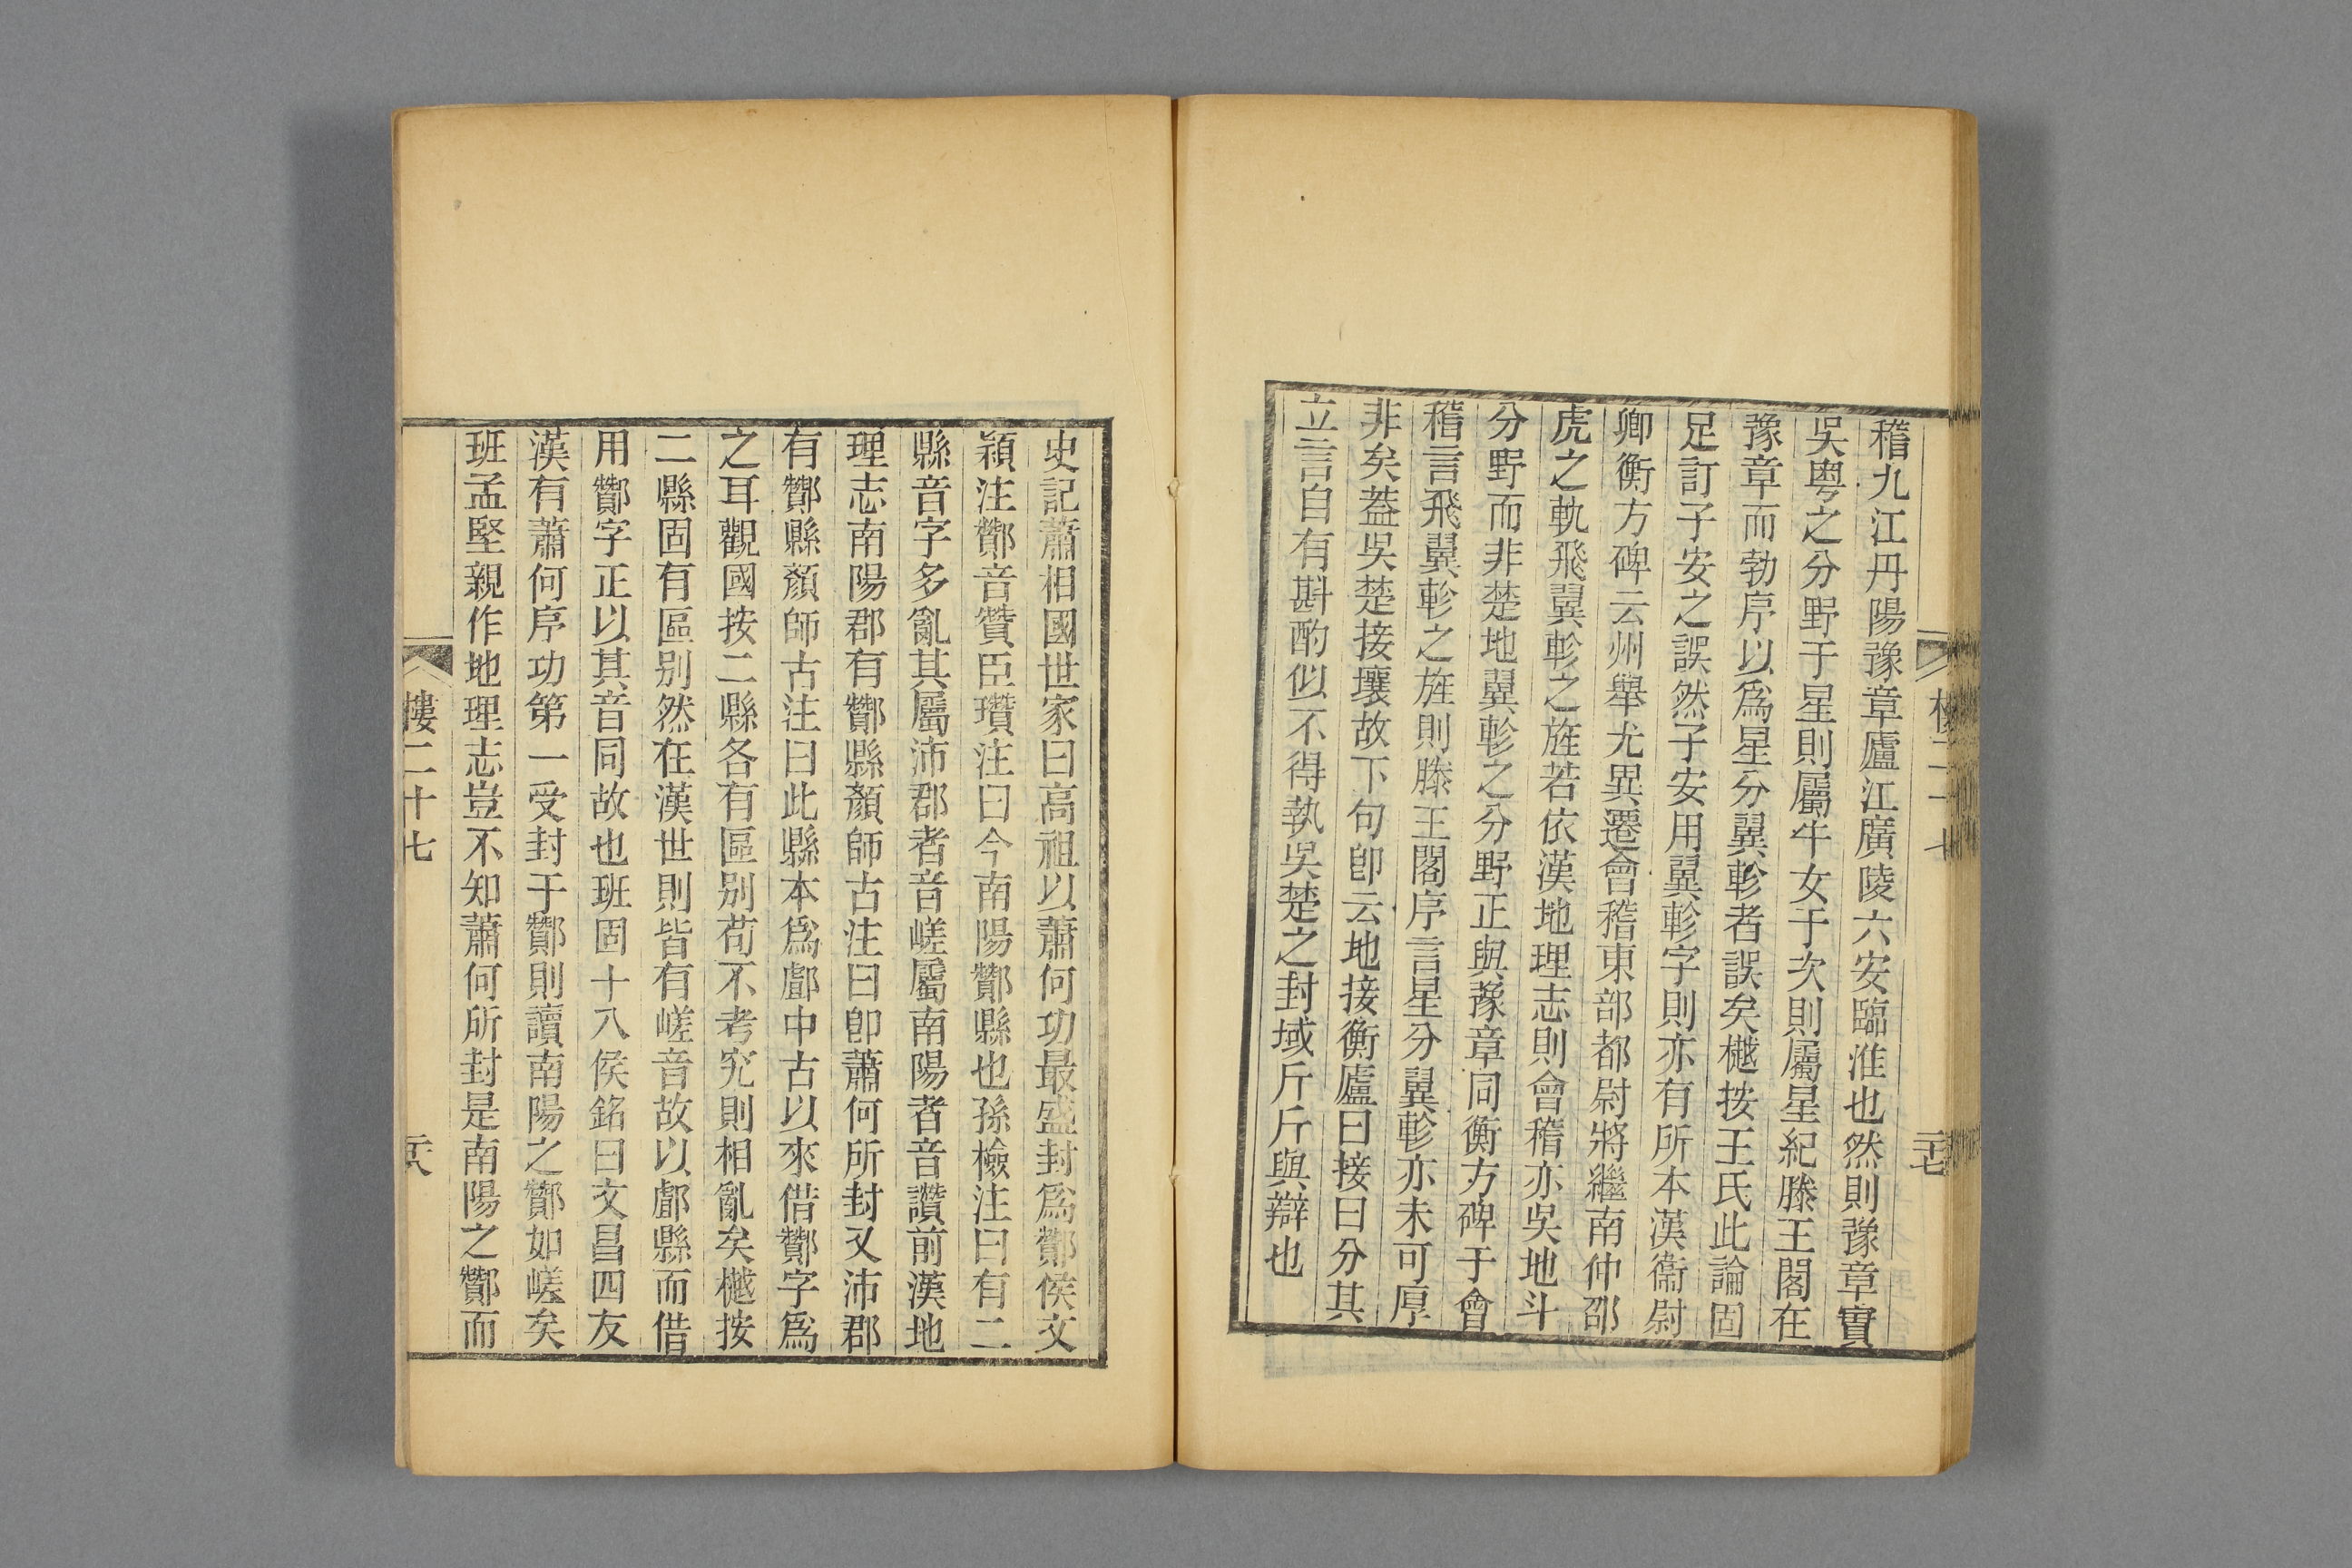 稽九江丹陽豫章廬江廣陵六安臨淮也然則豫章實
吳粵之分野于星則屬牛女于次則屬星紀滕王閣在
豫章而勃序以爲星分翼軫者誤矣樾按王氏此論固
足訂子安之誤然子安用翼軫字則亦有所本漢衞尉
卿衡方碑云州舉尤異遷會稽東部都尉將繼南仲邵
虎之軌飛翼軫之旌若依漢地理志則會稽亦吳地斗
分野而非楚地翼軫之分野正與豫章同衡方碑于會
稽言飛翼軫之旌則滕王閣序言星分翼軫亦未可厚
非矣葢吳楚接壤故下句卽云地接衡廬曰接曰分其
立言自有斟酌似不得執吳楚之封域斤斤與辯也
史記蕭相國世家曰高祖以蕭何功最盛封爲酇侯文
穎注酇音贊臣瓚注曰今南陽酇縣也孫檢注曰有二
縣音字多亂其屬沛郡者音嵯屬南陽者音讚前漢地
理志南陽郡有酇縣顏師古注曰卽蕭何所封又沛郡
有酇縣顏師古注曰此縣本爲𨝯中古以來借酇字爲
之耳觀國按二縣各有區别苟不考究則相亂矣樾按
二縣固有區别然在漢世則皆有嵯音故以𨝯縣而借
用酇字正以其音同故也班固十八侯銘曰文昌四友
漢有蕭何序功第一受封于酇則讀南陽之酇如嵯矣
班孟堅親作地理志豈不知蕭何所封是南陽之酇而
樓二十七
二十八